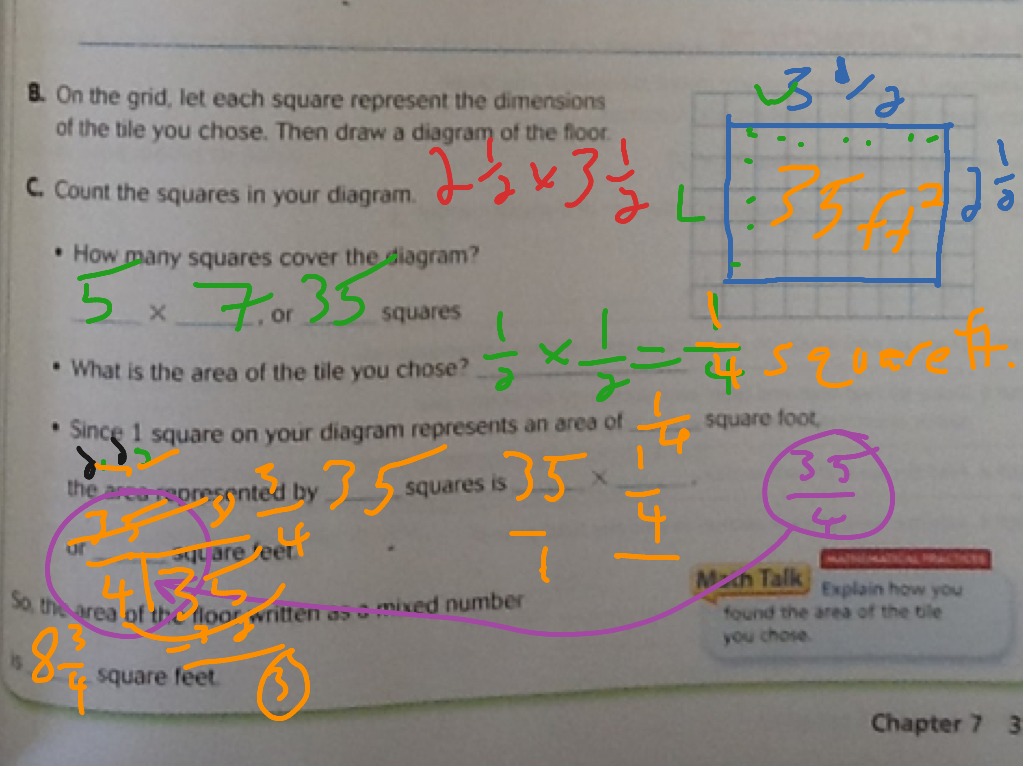 B. On the grid, let each square represent the dimensions
of the tile you chose. Then draw a diagram of the floor.
3 1/2
2 1/2
35 ft²
C. Count the squares in your diagram. 2 1/2 x 3 1/2
• How many squares cover the diagram?
5 × 7, or 35 squares
• What is the area of the tile you chose? 1/2 x 1/2 = 1/4 square ft.
• Since 1 square on your diagram represents an area of 1/4 square foot,
the area represented by 35 squares is 35/1 × 1/4.
or 35/4 square feet.
8 3/4
4 35
3
35/4
So, the area of the floor written as a mixed number
is 8 3/4 square feet.
MATHEMATICAL PRACTICES
Math Talk
Explain how you
found the area of the tile
you chose.
Chapter 7 3